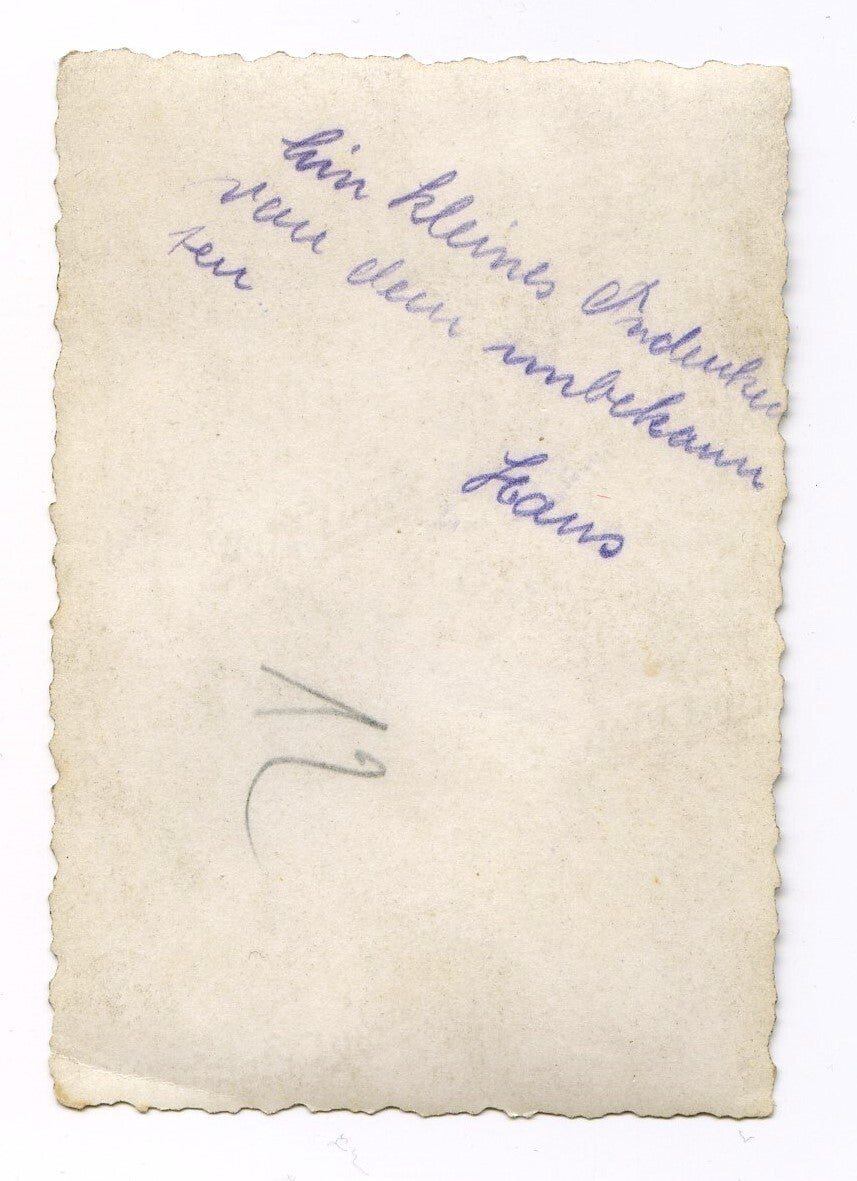 Ein kleines Andenken
von dem unbekann
ten
Hans
12